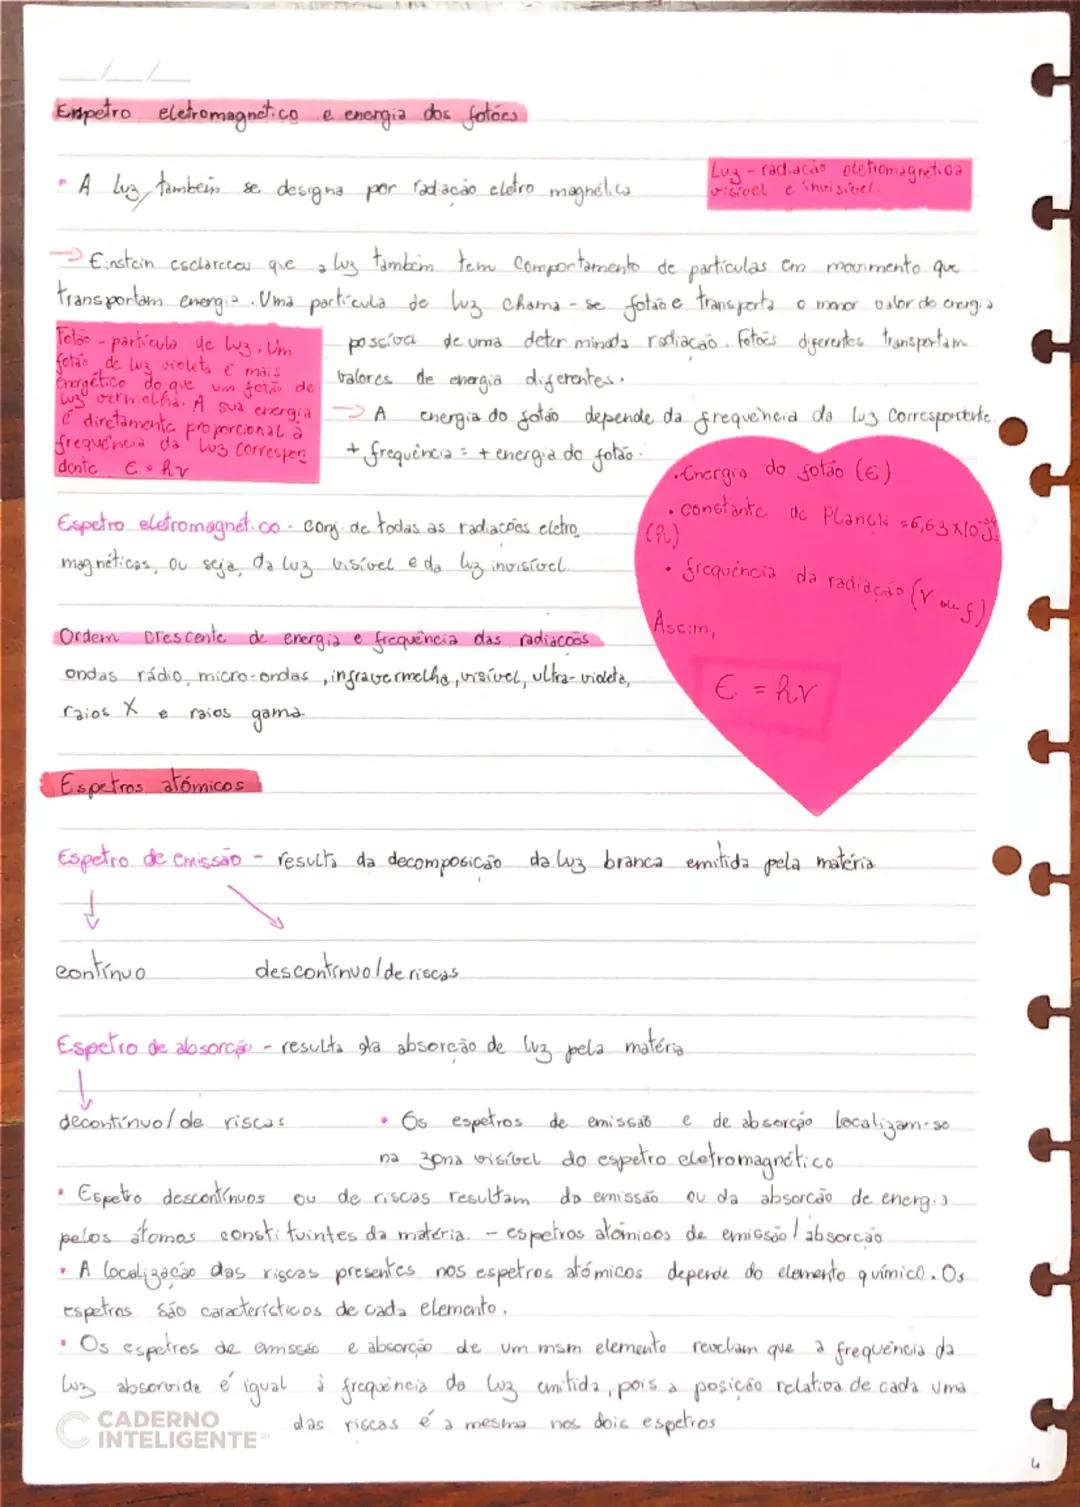 Espetro eletromagnético e energia dos fotões
• A luz, também se designa por radiação eletro magnética
Luz - radiacão eletromagnetica
visível e invisível.
→ Einstein esclareceu que a luz também tem comportamento de particulas em movimento que
transportam energia. Uma partícula de luz chama-se fotão e transporta o menor valor de energia
possível de uma determinada radiação. Fotões diferentes transportam
valores de energia diferentes.
Fotão - partícula de luz. Um
fotão de luz violeta é mais
energético do que um fotão de
luz vermelha. A sua energia
é diretamente proporcional à
frequência da luz correspon
dente E = hν
→ A energia do fotão depende da frequência da luz correspondente.
+ frequência = + energia do fotão.
• Energia do fotão (E)
• constante de Planck = 6,63 x 10⁻³⁴ J
(h)
• frequência da radiação (ν ou f)
Assim,
E = hν
Espetro eletromagnético - conj. de todas as radiações eletro
magnéticas, ou seja, da luz visível e da luz invisível.
Ordem crescente de energia e frequência das radiações
ondas rádio, micro-ondas, infravermelha, visível, ultra-violeta,
raios X e raios gama.
Espetros atómicos
Espetro de emissão - resulta da decomposição da luz branca emitida pela matéria
contínuo descontínuo/de riscas
Espetro de absorção - resulta da absorção de luz pela matéria
decontínuo/de riscas
• Os espetros de emissão e de absorção localizam-se
na zona visível do espetro eletromagnético
• Espetro descontínuos ou de riscas resultam da emissão ou da absorcão de energia
pelos átomos constituintes da matéria. - espetros atómicos de emissão/absorcão
• A localização das riscas presentes nos espetros atómicos depende do elemento químico. Os
espetros são característicos de cada elemento.
• Os espetros de emissão e absorção de um msm elemento revelam que a frequência da
luz absorvida é igual à frequência da luz emitida, pois a posição relativa de cada uma
das riscas é a mesma nos dois espetros
CADERNO
INTELIGENTE
4